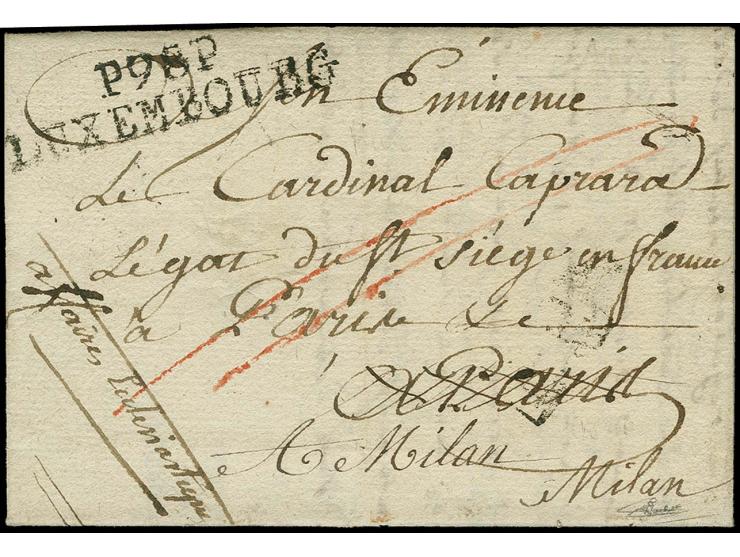 P98P
LUXEMBOURG
Son Eminence
Le Cardinal Caprara
Légat du St siége en france
à Paris
à Paris
A Milan
Milan
affaires Ecclesiastiques